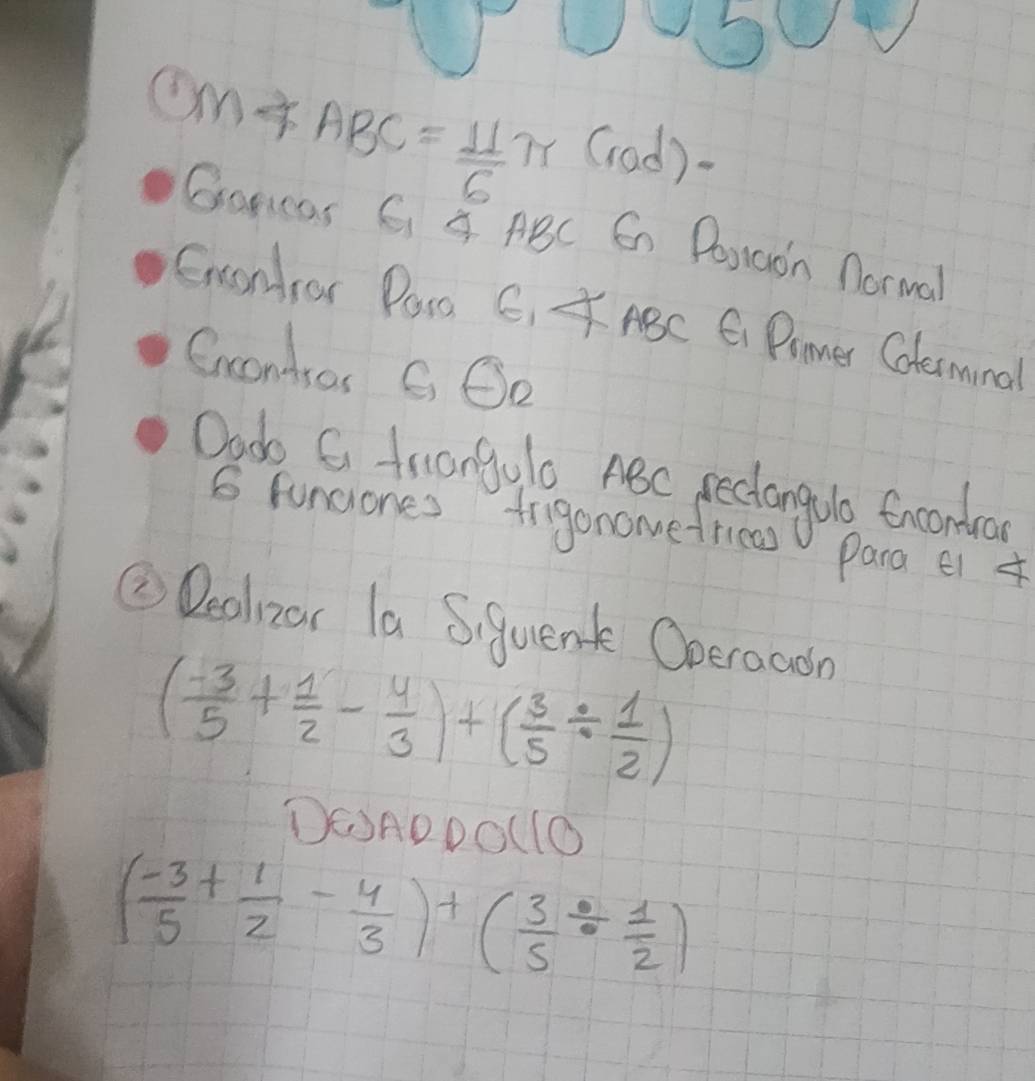 ① m ∡ ABC = 11/6 π (rad)-
• Graficar El ∡ ABC En Posición Normal
• Encontrar Para El ∡ ABC El Primer Coterminal
• Encontrar El ΘR
• Dado El triangulo ABC rectangulo Encontrar
6 funciones trigonometricas Para El ∡
② Realizar la Siguiente Operación
(-3/5 + 1/2 - 4/3) + (3/5 ÷ 1/2)
DESARROLLO
(-3/5 + 1/2 - 4/3) + (3/5 ÷ 1/2)